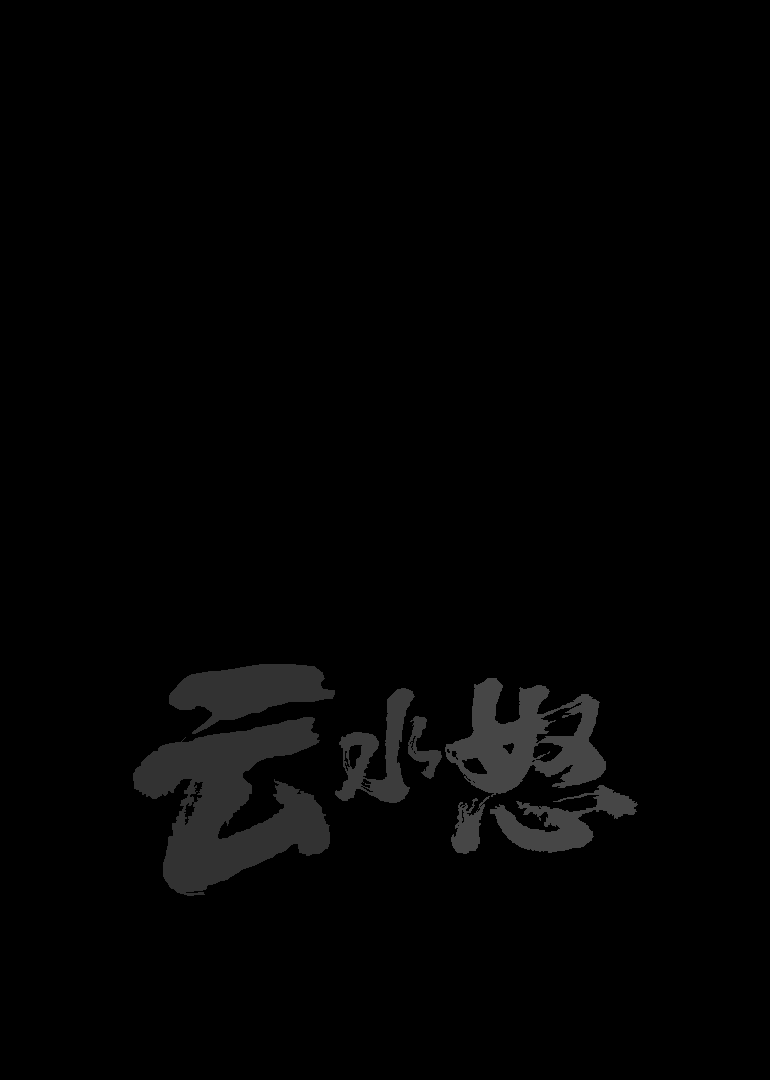 云水怒